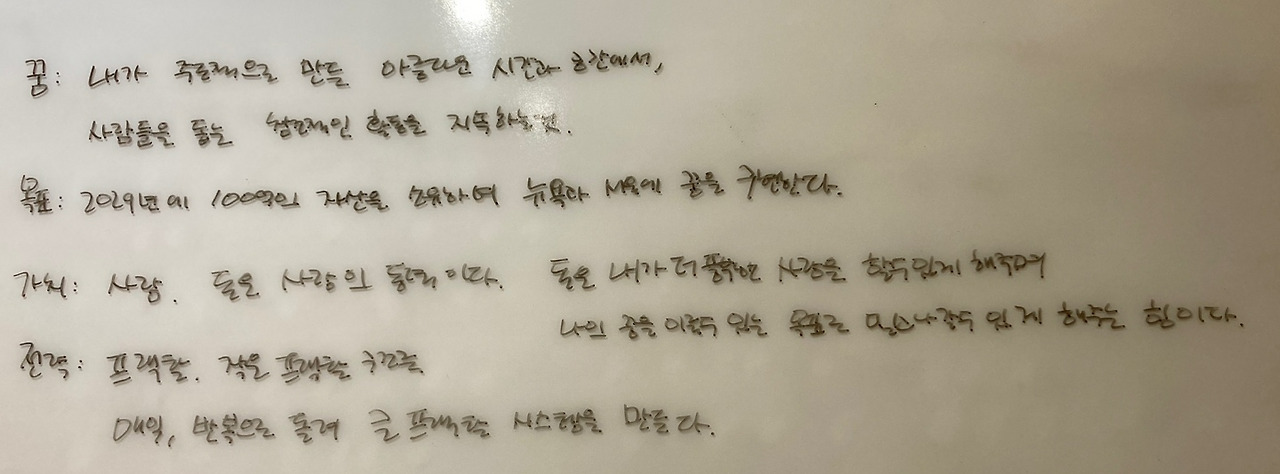 꿈: 내가 주도적으로 만들 아름다운 시간과 공간에서,
사람들을 돕는 창조적인 활동을 지속하는 것.
목표: 2029년에 100억의 자산을 소유하며 뉴욕과 서울에 꿈을 구현한다.
가치: 사랑. 돈은 사랑의 동력이다. 돈은 내가 더 풍요한 사랑을 할 수 있게 해주며
나의 꿈을 이룰 수 있는 목표로 나갈 수 있게 해주는 힘이다.
전략: 프랙탈. 작은 프랙탈 구조를
매일, 반복으로 돌려 큰 프랙탈 시스템을 만들다.